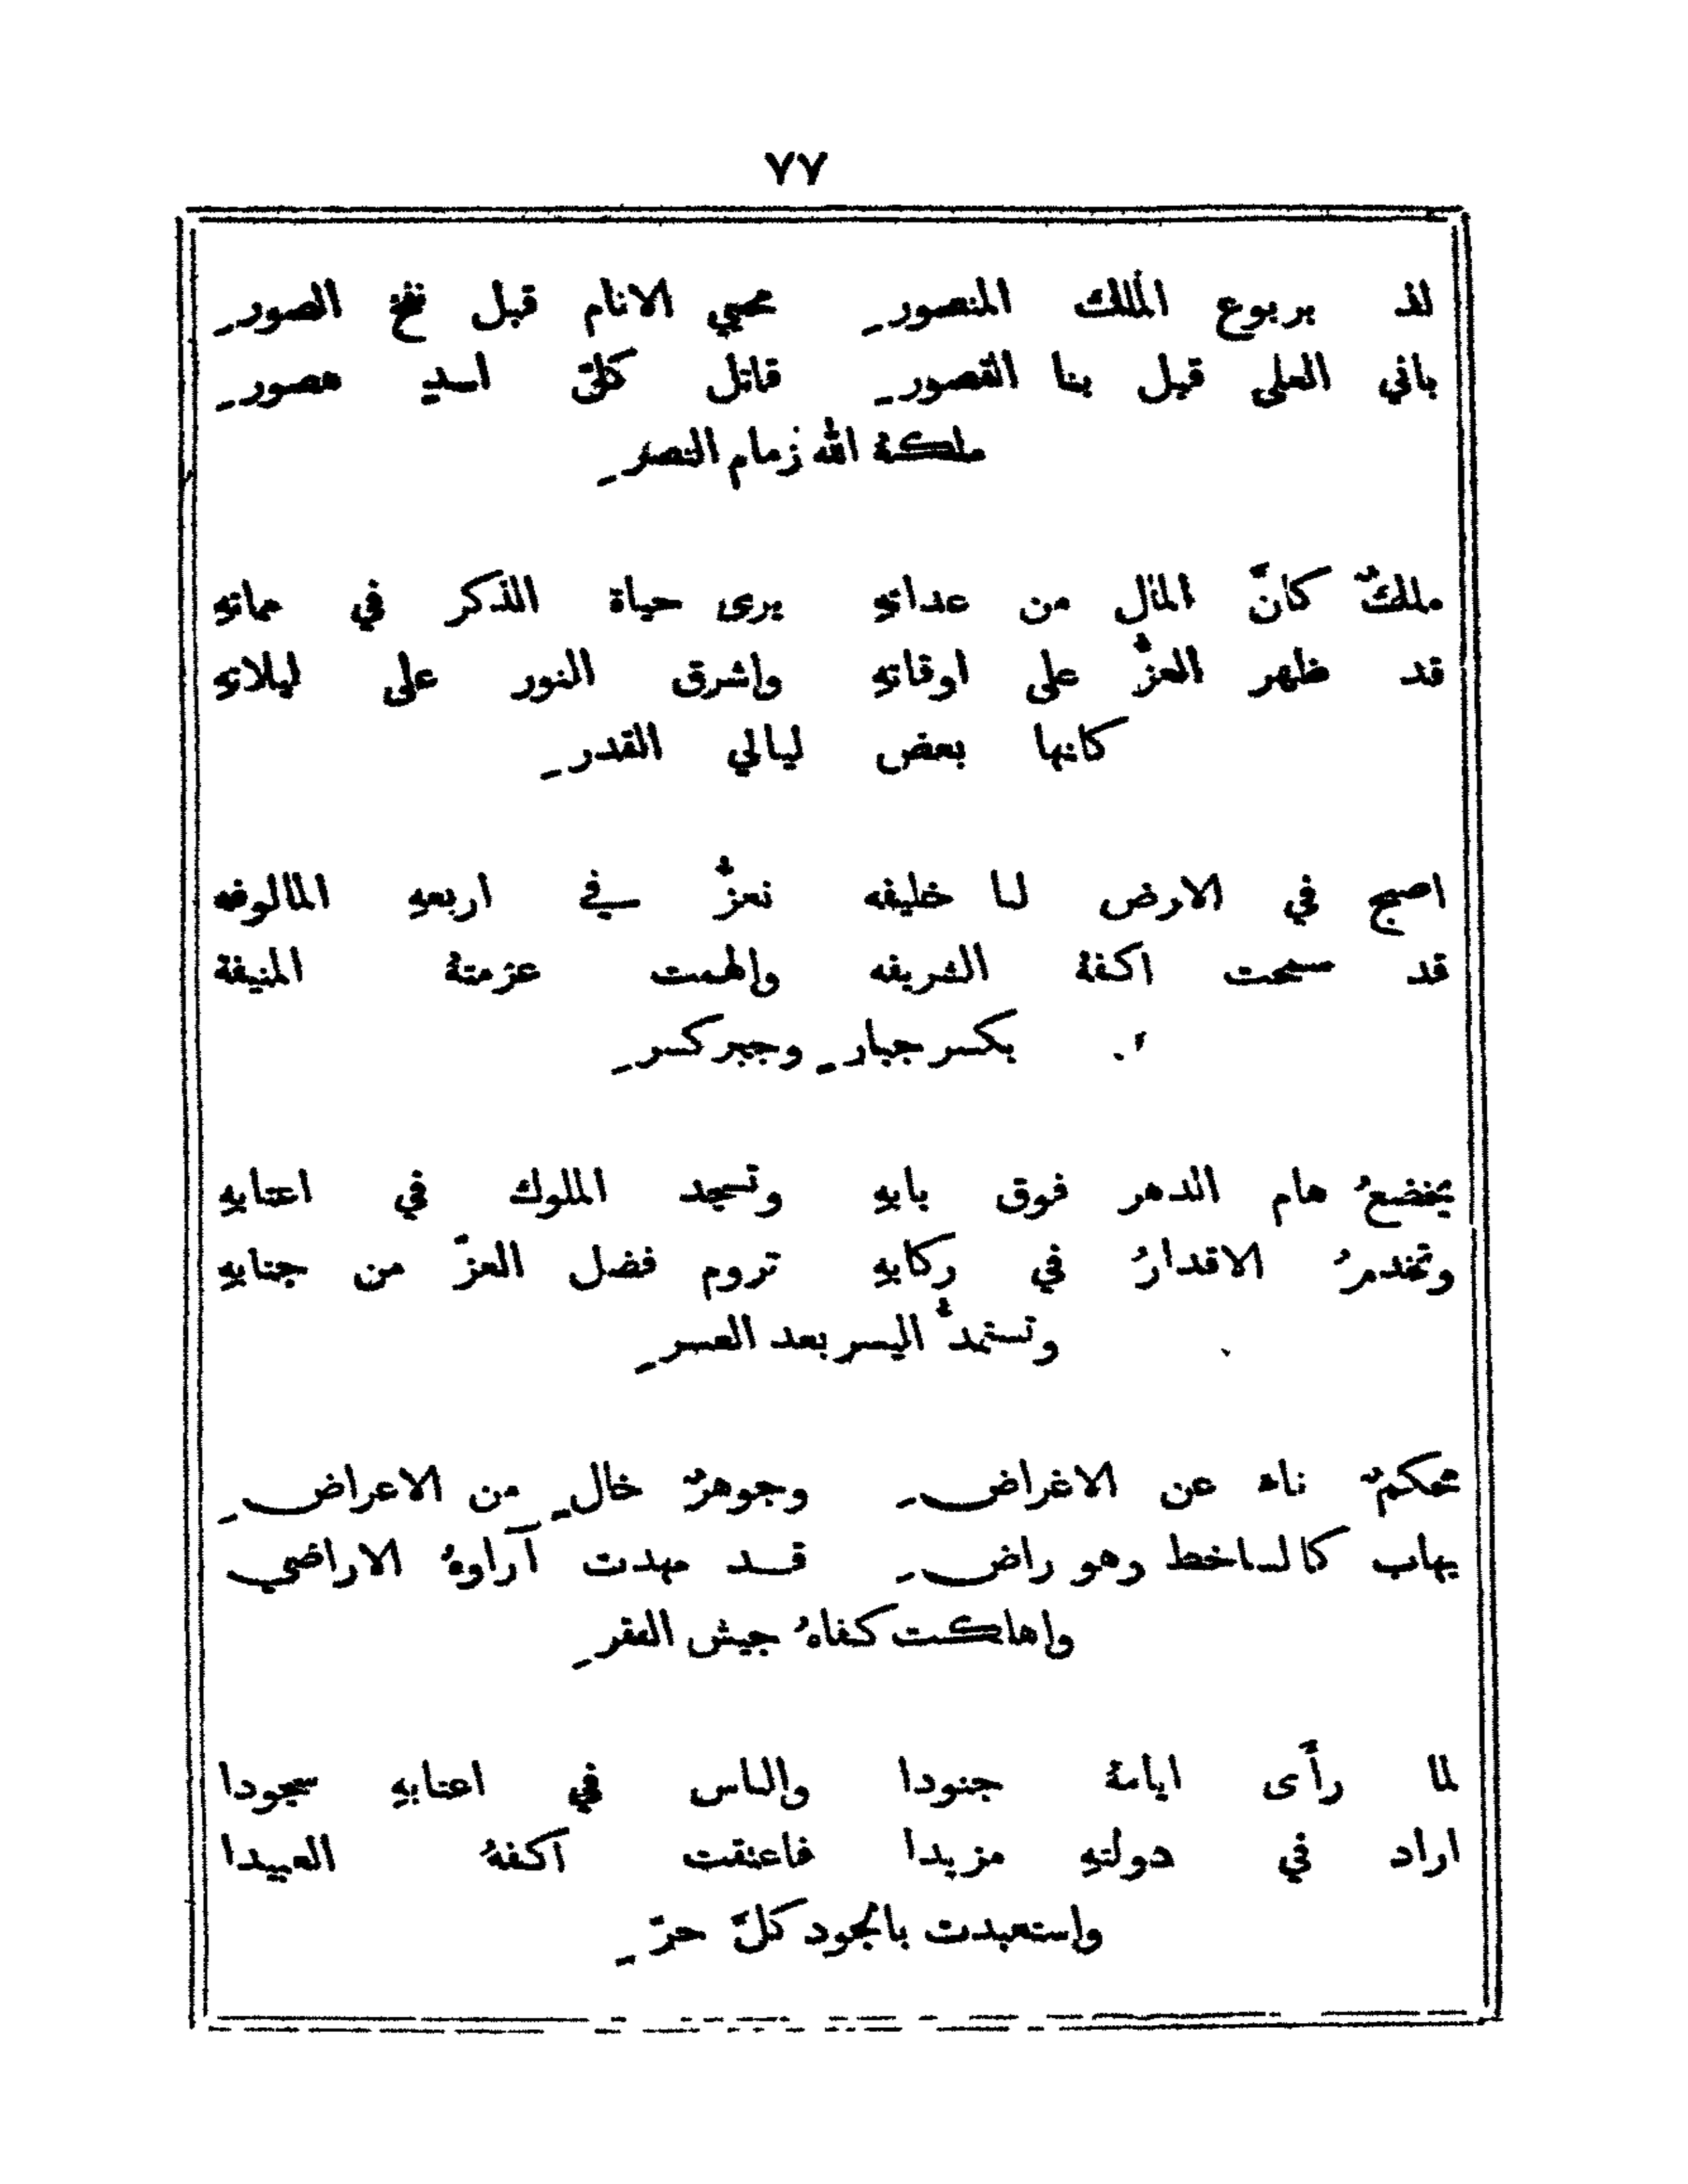 ٧٧
لذ بربوع الملك المنصورِ محيي الانام قبل نفخ الصورِ
باني العلى قبل بنا القصورِ قاتل كلّ اسدٍ هصورِ
ملكهُ الله زمام النصرِ
ملكٌ كانَّ المال من عداتهِ يرى حياة الذكر في مماتهِ
قد ظهر العزُّ على اوقاتهِ واشرق النور على ليلاتهِ
كانها بعض ليالي القدرِ
اصبح في الارض لنا خليفه نعزُّ في اربعهِ المالوفه
قد سمحت اكفهُ الشريفه والهمت عزمتهُ المنيفة
بكسر جبارٍ وجبر كسرِ
يخضعُ هام الدهر فوق بابهِ وتسجد الملوك في اعتابهِ
وتخدمُ الاقدارُ في ركابهِ تروم فضل العزّ من جنابهِ
وتستمدُّ اليسر بعد العسرِ
محكمٌ ناء عن الاغراضِ وجوهرٌ خالٍ من الاعراضِ
يهاب كالساخط وهو راضِ قد مهدت آراوهُ الاراضي
واهلكت كفاهُ جيش الفقرِ
لما رأى ايامهُ جنودا والناس في اعتابهِ سجودا
اراد في دولتهِ مزيدا فاعتقت اكفهُ العبيدا
واستعبدت بالجود كلَّ حرّ